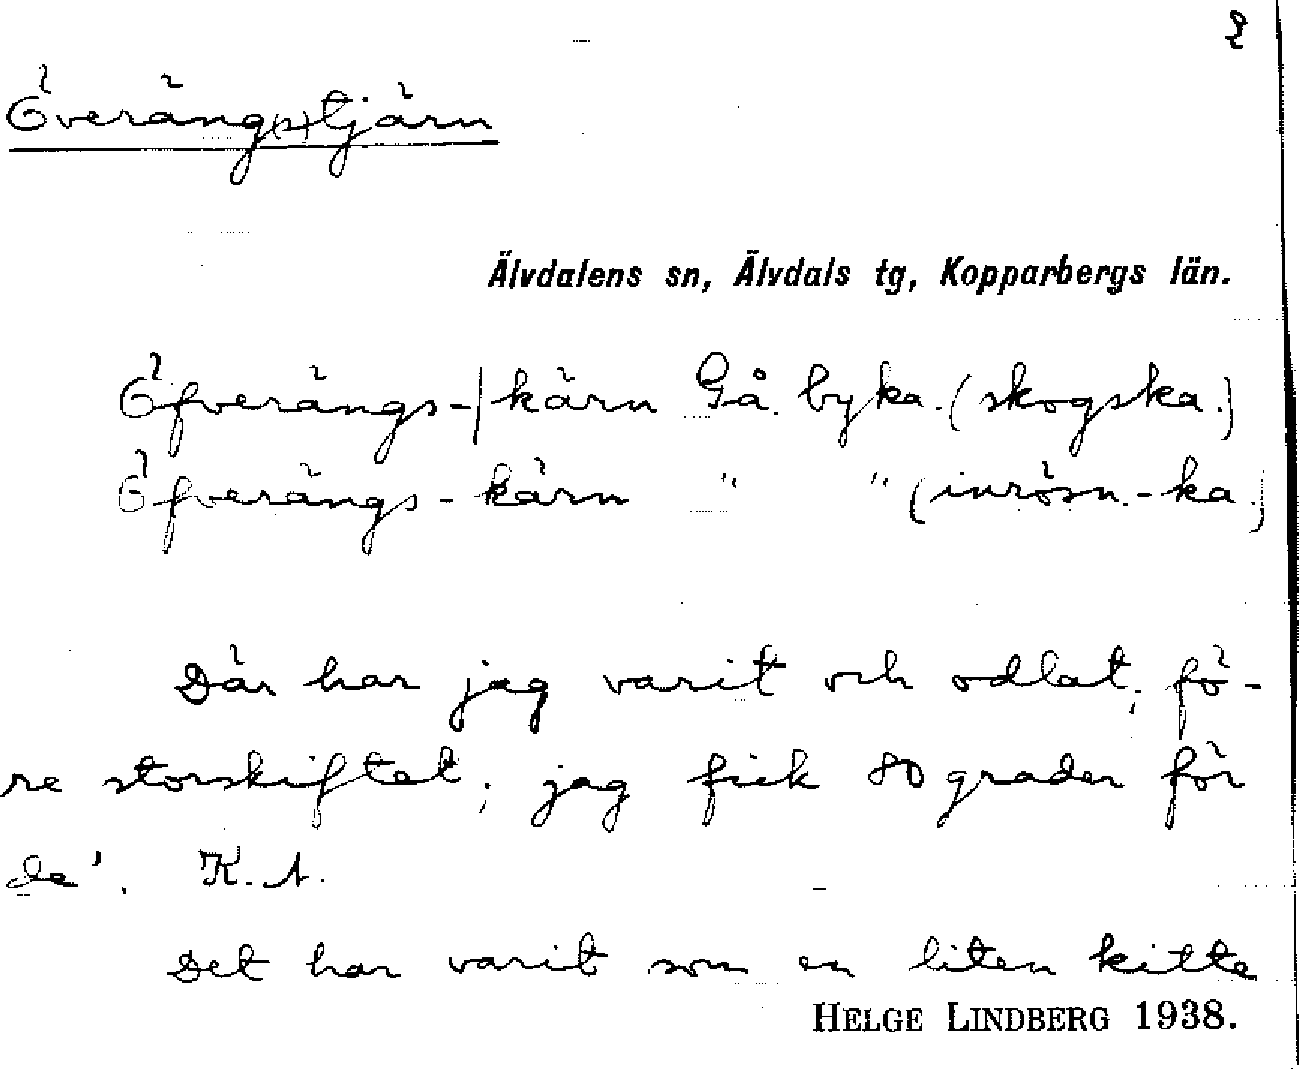 2
Överäng(s)tjärn
Älvdalens sn, Älvdals tg, Kopparbergs län.
Öfverängs-|kärn Gå. byka. (skogska.)
Öfverängs-kärn " " (inrösn.-ka.)
Där har jag varit och odlat, fö-
re storskiftet; jag fick 80 grader för
de'. K.A.
Det har varit som en liten kitte
HELGE LINDBERG 1938.